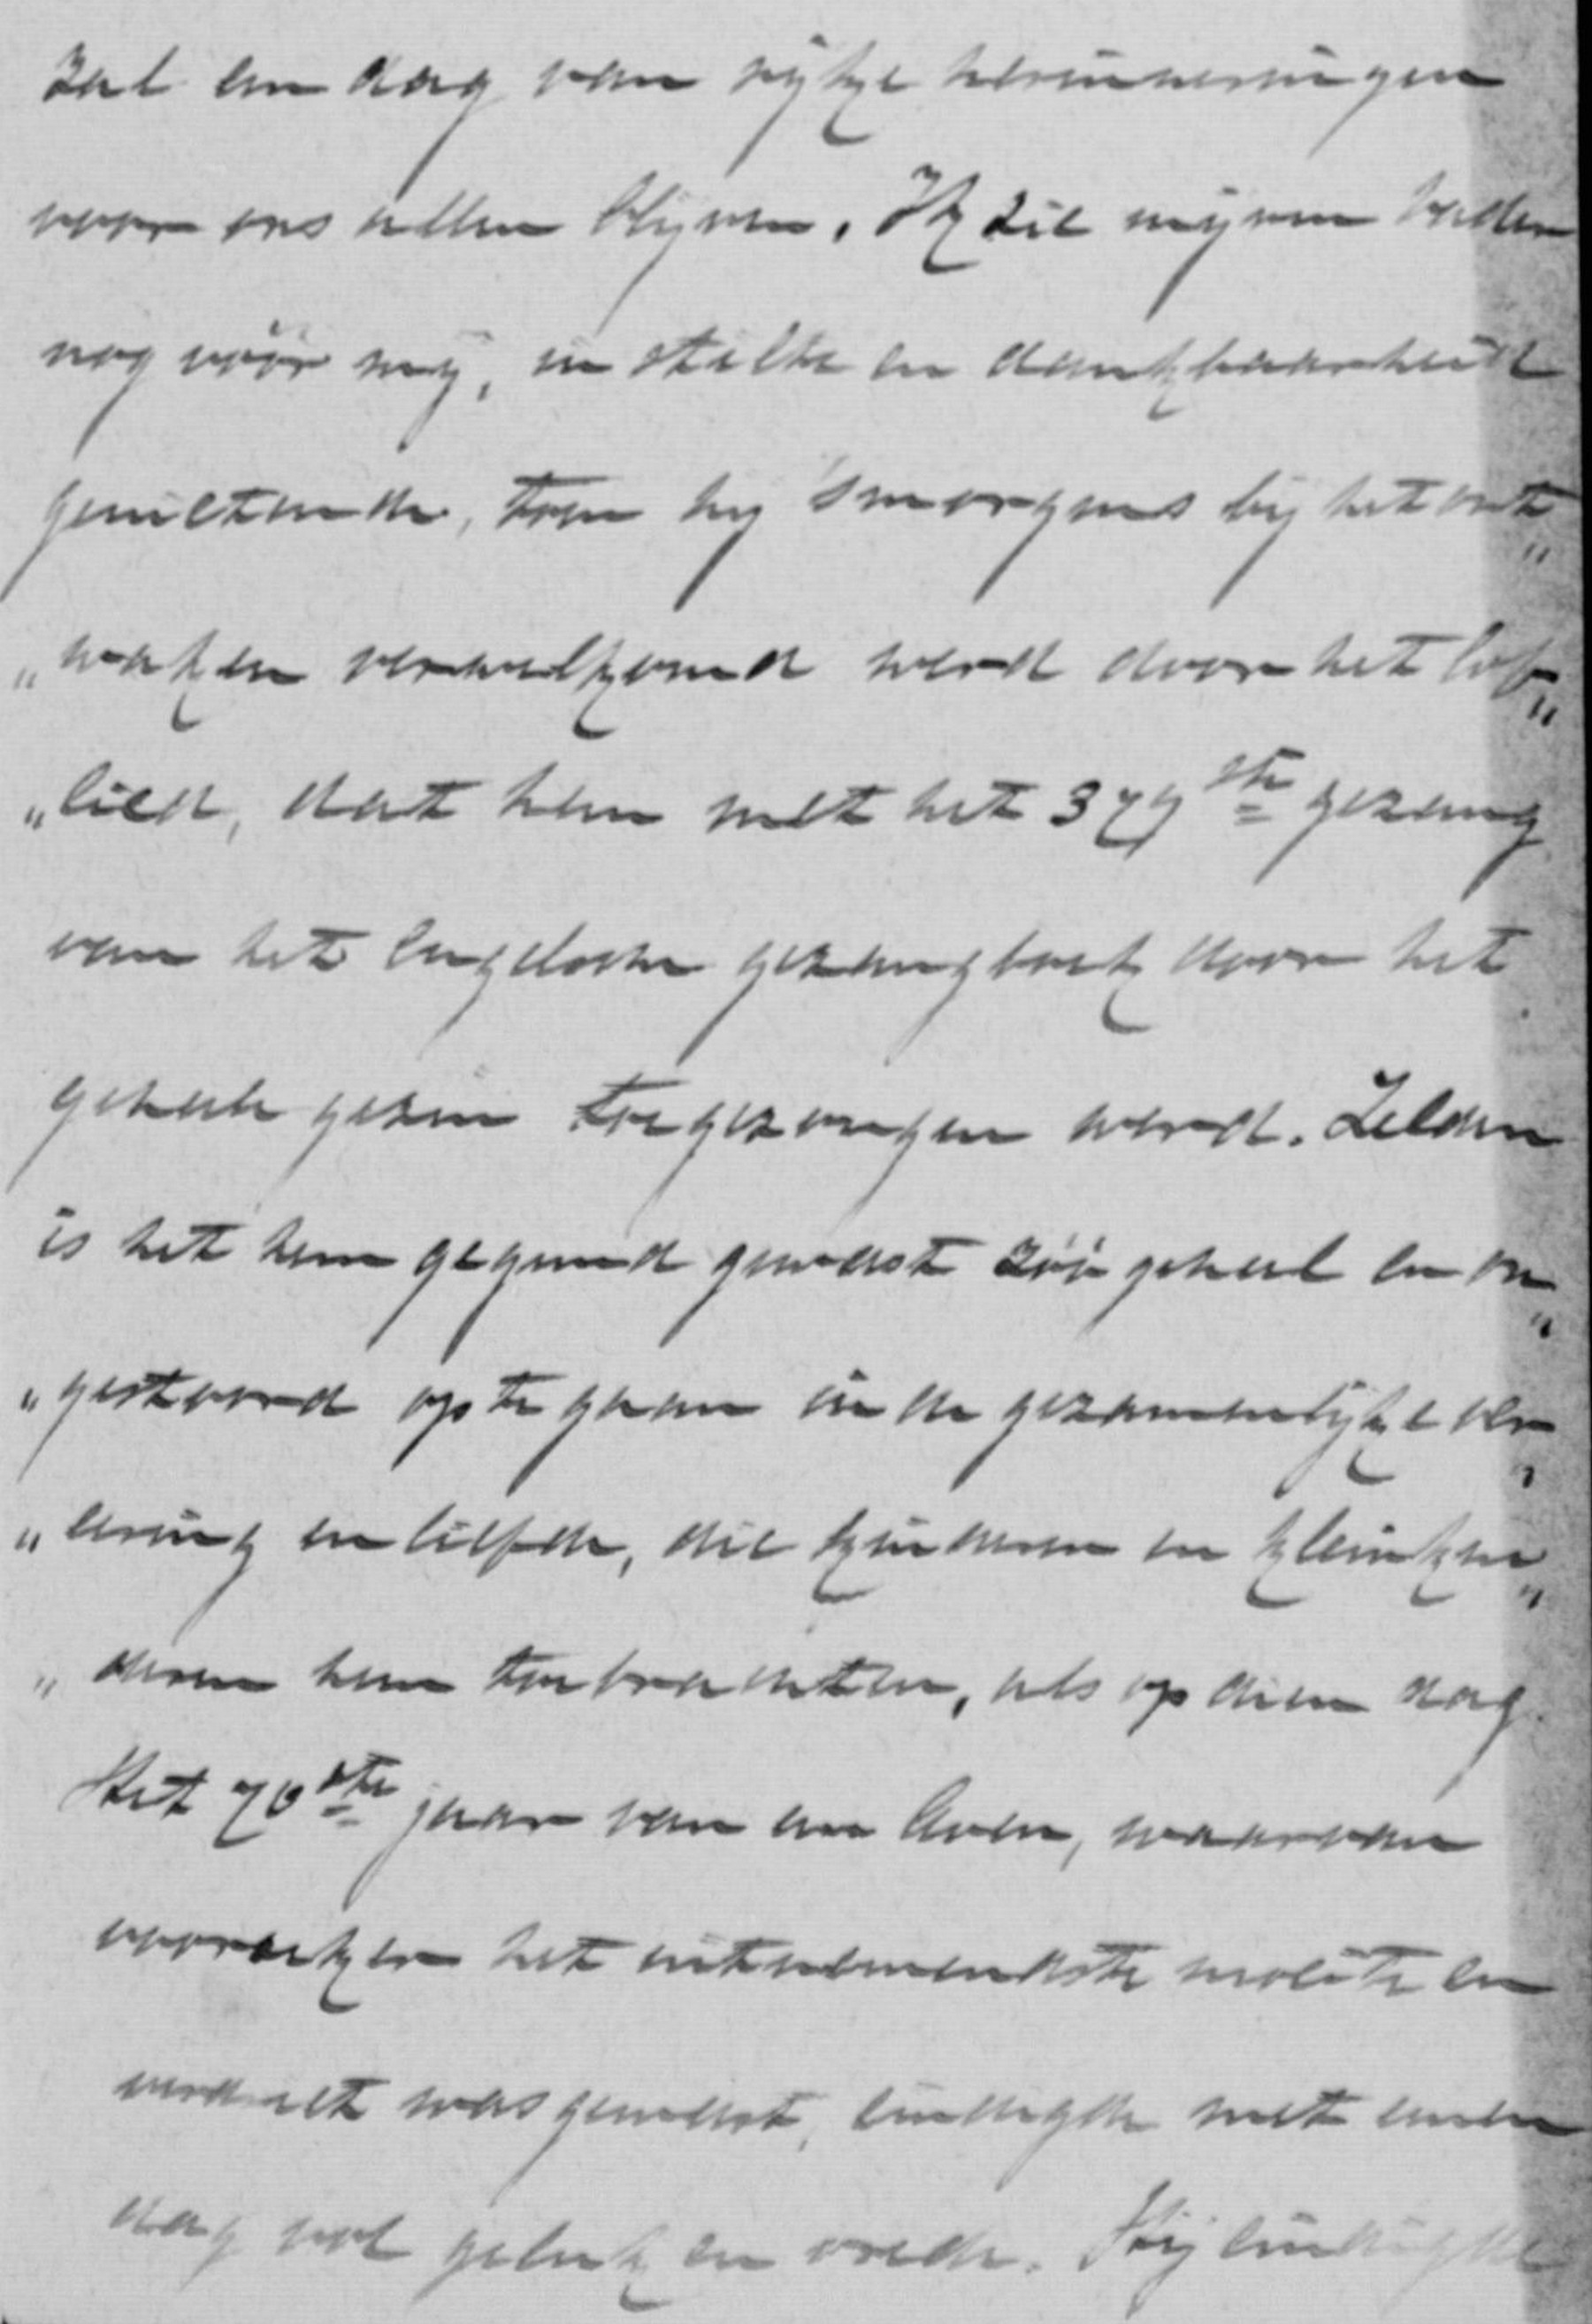 zal een dag van rijke herinneringen
voor ons allen blijven. Ik zie mijnen vader
nog vóór mij, in stilte en dankbaarheid
genietende, toen hij 'smorgens bij het ont„
„waken verwelkomd werd door het lof„
„lied, dat hem met het 379ste gezang
van het Engelsche gezangboek door het
geheele gezin toegezongen werd. Zelden
is het hem gegund geweest zóó geheel en on„
„gestoord op te gaan in de gezamenlijke ver„
„eering en liefde, die kinderen en kleinkin„
„deren hem toebrachten, als op dien dag.
Het 70ste jaar van een leven, waarvan
voorzeker het uitnemendste moeite en
verdriet was geweest, eindigde met eenen
dag vol geluk en vrede. Hij eindigde